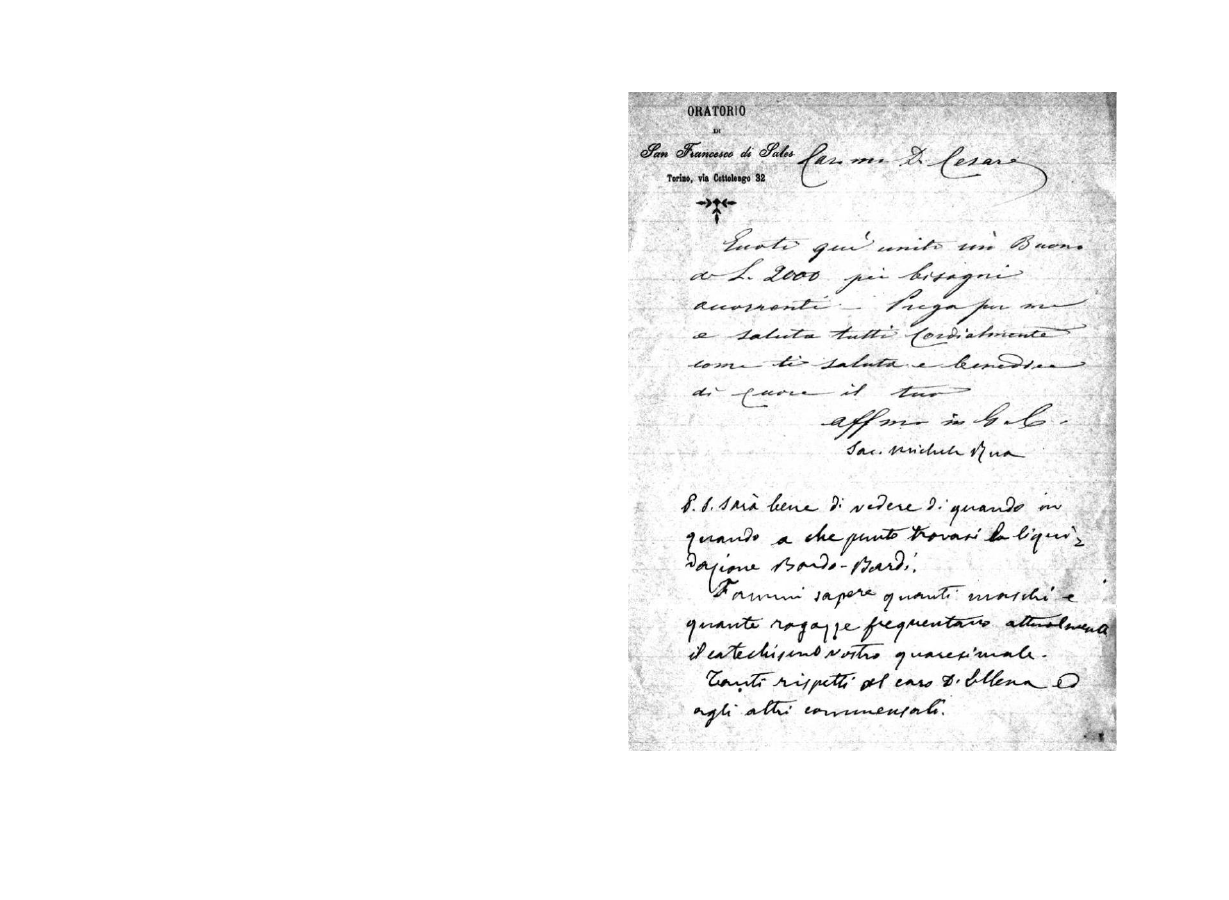 ORATORIO
DI
San Francesco di Sales
Torino, via Cottolengo 32
Car.mo D. Cesare
Eccoti qui unito un Buono
di L. 2000 pei bisogni
occorrenti – Prega per me
e saluta tutti cordialmente
come ti saluta e benedice
di cuore il tuo
aff.mo in G. e C.
Sac. Michele Rua
P. S. Sarà bene di vedere di quando in
quando a che punto trovasi la liqui-
dazione Bardi.
Fammi sapere quanti maschi e
quante ragazze frequentano attualmente
il catechismo vostro quaresimale.
Tanti rispetti al caro D. ed
agli altri commensali.